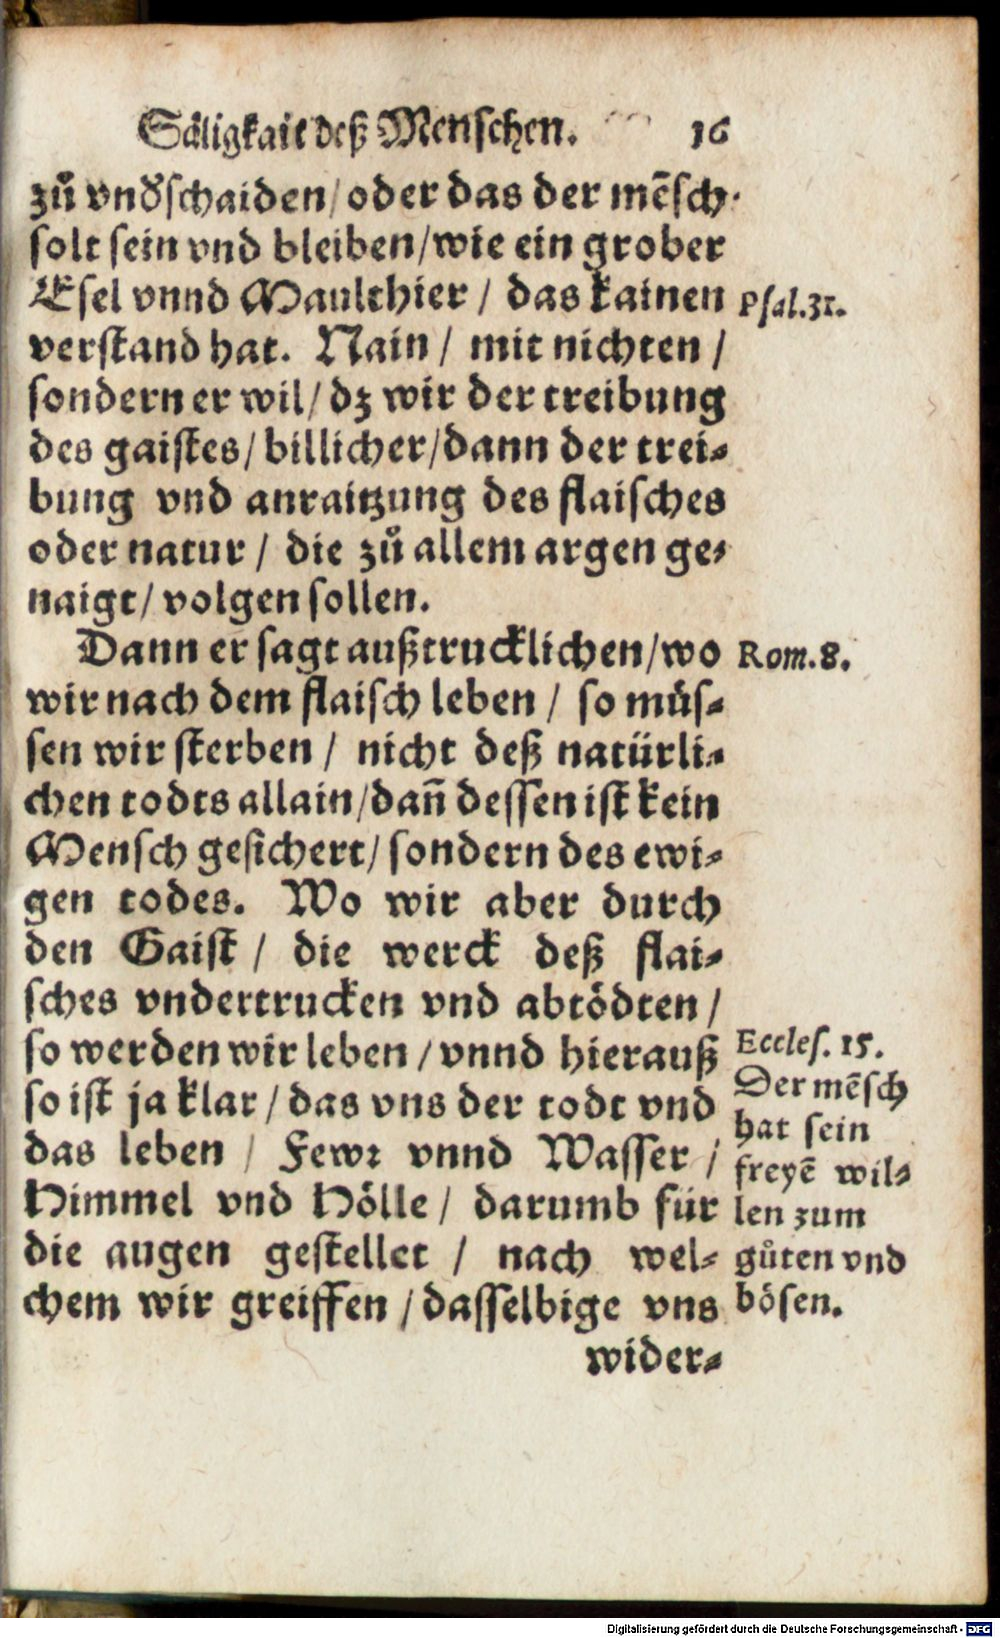 Säligkait deß Menschen. 16
zů vnd'schaiden/oder das der mēsch
solt sein vnd bleiben/wie ein grober
Esel vnnd Maulthier / das kainen
verstand hat. Nain / mit nichten /
sondern er wil/ dz wir der treibung
des gaistes/ billicher/dann der trei-
bung vnd anraitzung des flaisches
oder natur / die zů allem argen ge-
naigt/ volgen sollen.
Dann er sagt außtrucklichen/wo
wir nach dem flaisch leben / so müs-
sen wir sterben / nicht deß natürli-
chen todts allain/dañ dessen ist kein
Mensch gesichert/ sondern des ewi-
gen todes. Wo wir aber durch
den Gaist / die werck deß flai-
sches vndertrucken vnd abtödten /
so werden wir leben / vnnd hierauß
so ist ja klar / das vns der todt vnd
das leben / Fewr vnnd Wasser /
Himmel vnd Hölle / darumb für
die augen gestellet / nach wel-
chem wir greiffen / dasselbige vns
wider-
Psal.31.
Rom.8.
Eccles. 15.
Der mēsch
hat sein
freyē wil-
len zum
gůten vnd
bösen.
Digitalisierung gefördert durch die Deutsche Forschungsgemeinschaft - DFG